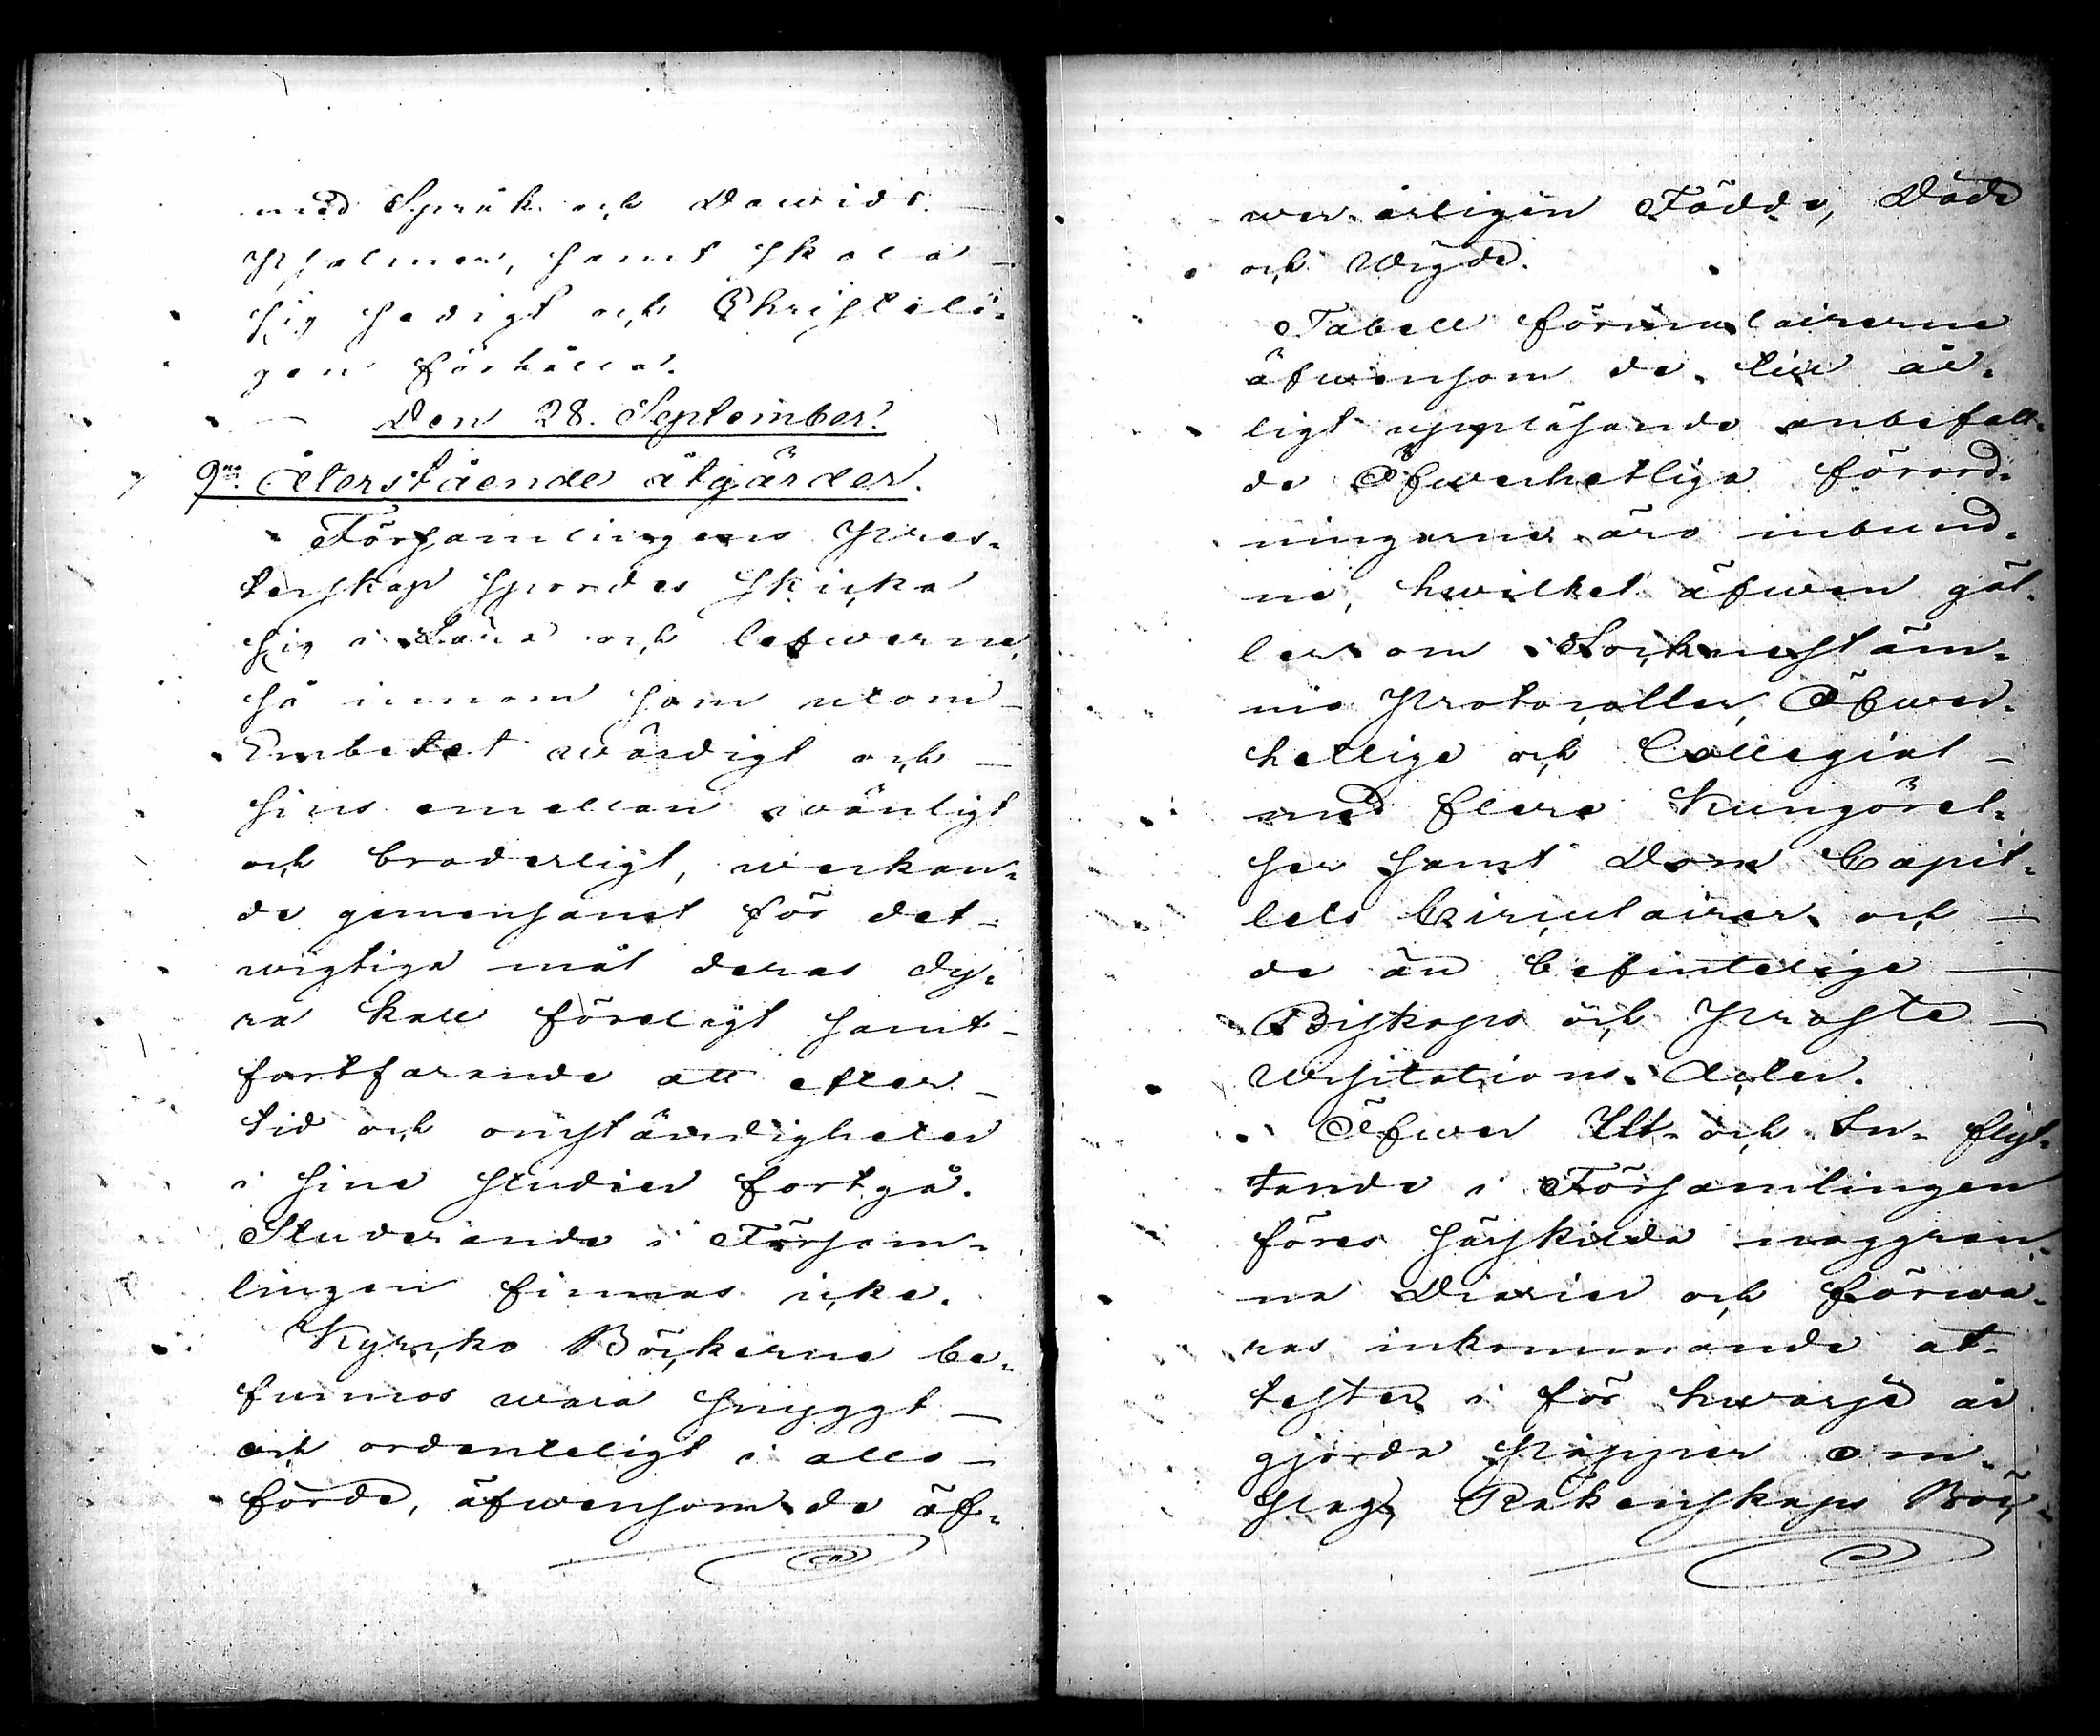 med Språk och Dawids
Psalmer, samt skola
sig sedigt och Christeli-
gen förhålla.
Den 28. September.
9no Återstående åtgärder.
Församlingens Pres-
terskap spordes skicka
sig i Lära och lefwerne,
så innom som utom
Embetet wärdigt och
sins emellan wänligt
och broderligt, werkan-
de gemensamt för det
wigtiga mål deras dy-
ra kall förelagt samt
fortfarande att efter
tid och omständigheter
i sina studier fortgå.
Studerande i Försam-
lingen finnas icke.
Kyrcko Böckerne be-
funnos wara snyggt
och ordenteligt i allo
förde, äfwensom de öf-
wer årligen Födde, Döde
och Wigde.
Tabell formulairerne
äfwensom de till år-
ligt uppläsande anbefall-
de Öfwerhetliga förord-
ningarne äro inbund-
ne, hwilket äfwen gäl-
ler om Sockne stäm-
mo Protocoller, Öfwer-
hetlige och Collegial
med flere Kungörel-
ser samt Dom Capit-
lets Circulairer och
de än befintelige
Biskops och Prosте
Wisitations Acter.
Öfwer Ut- och In- flyt-
tande i Församlingen
föres särskilda noggran-
na Diarier och förwa-
ras inkommande at-
tester i för hwarje år
gjorda Papper om-
slag, Räkenskaps Böc-